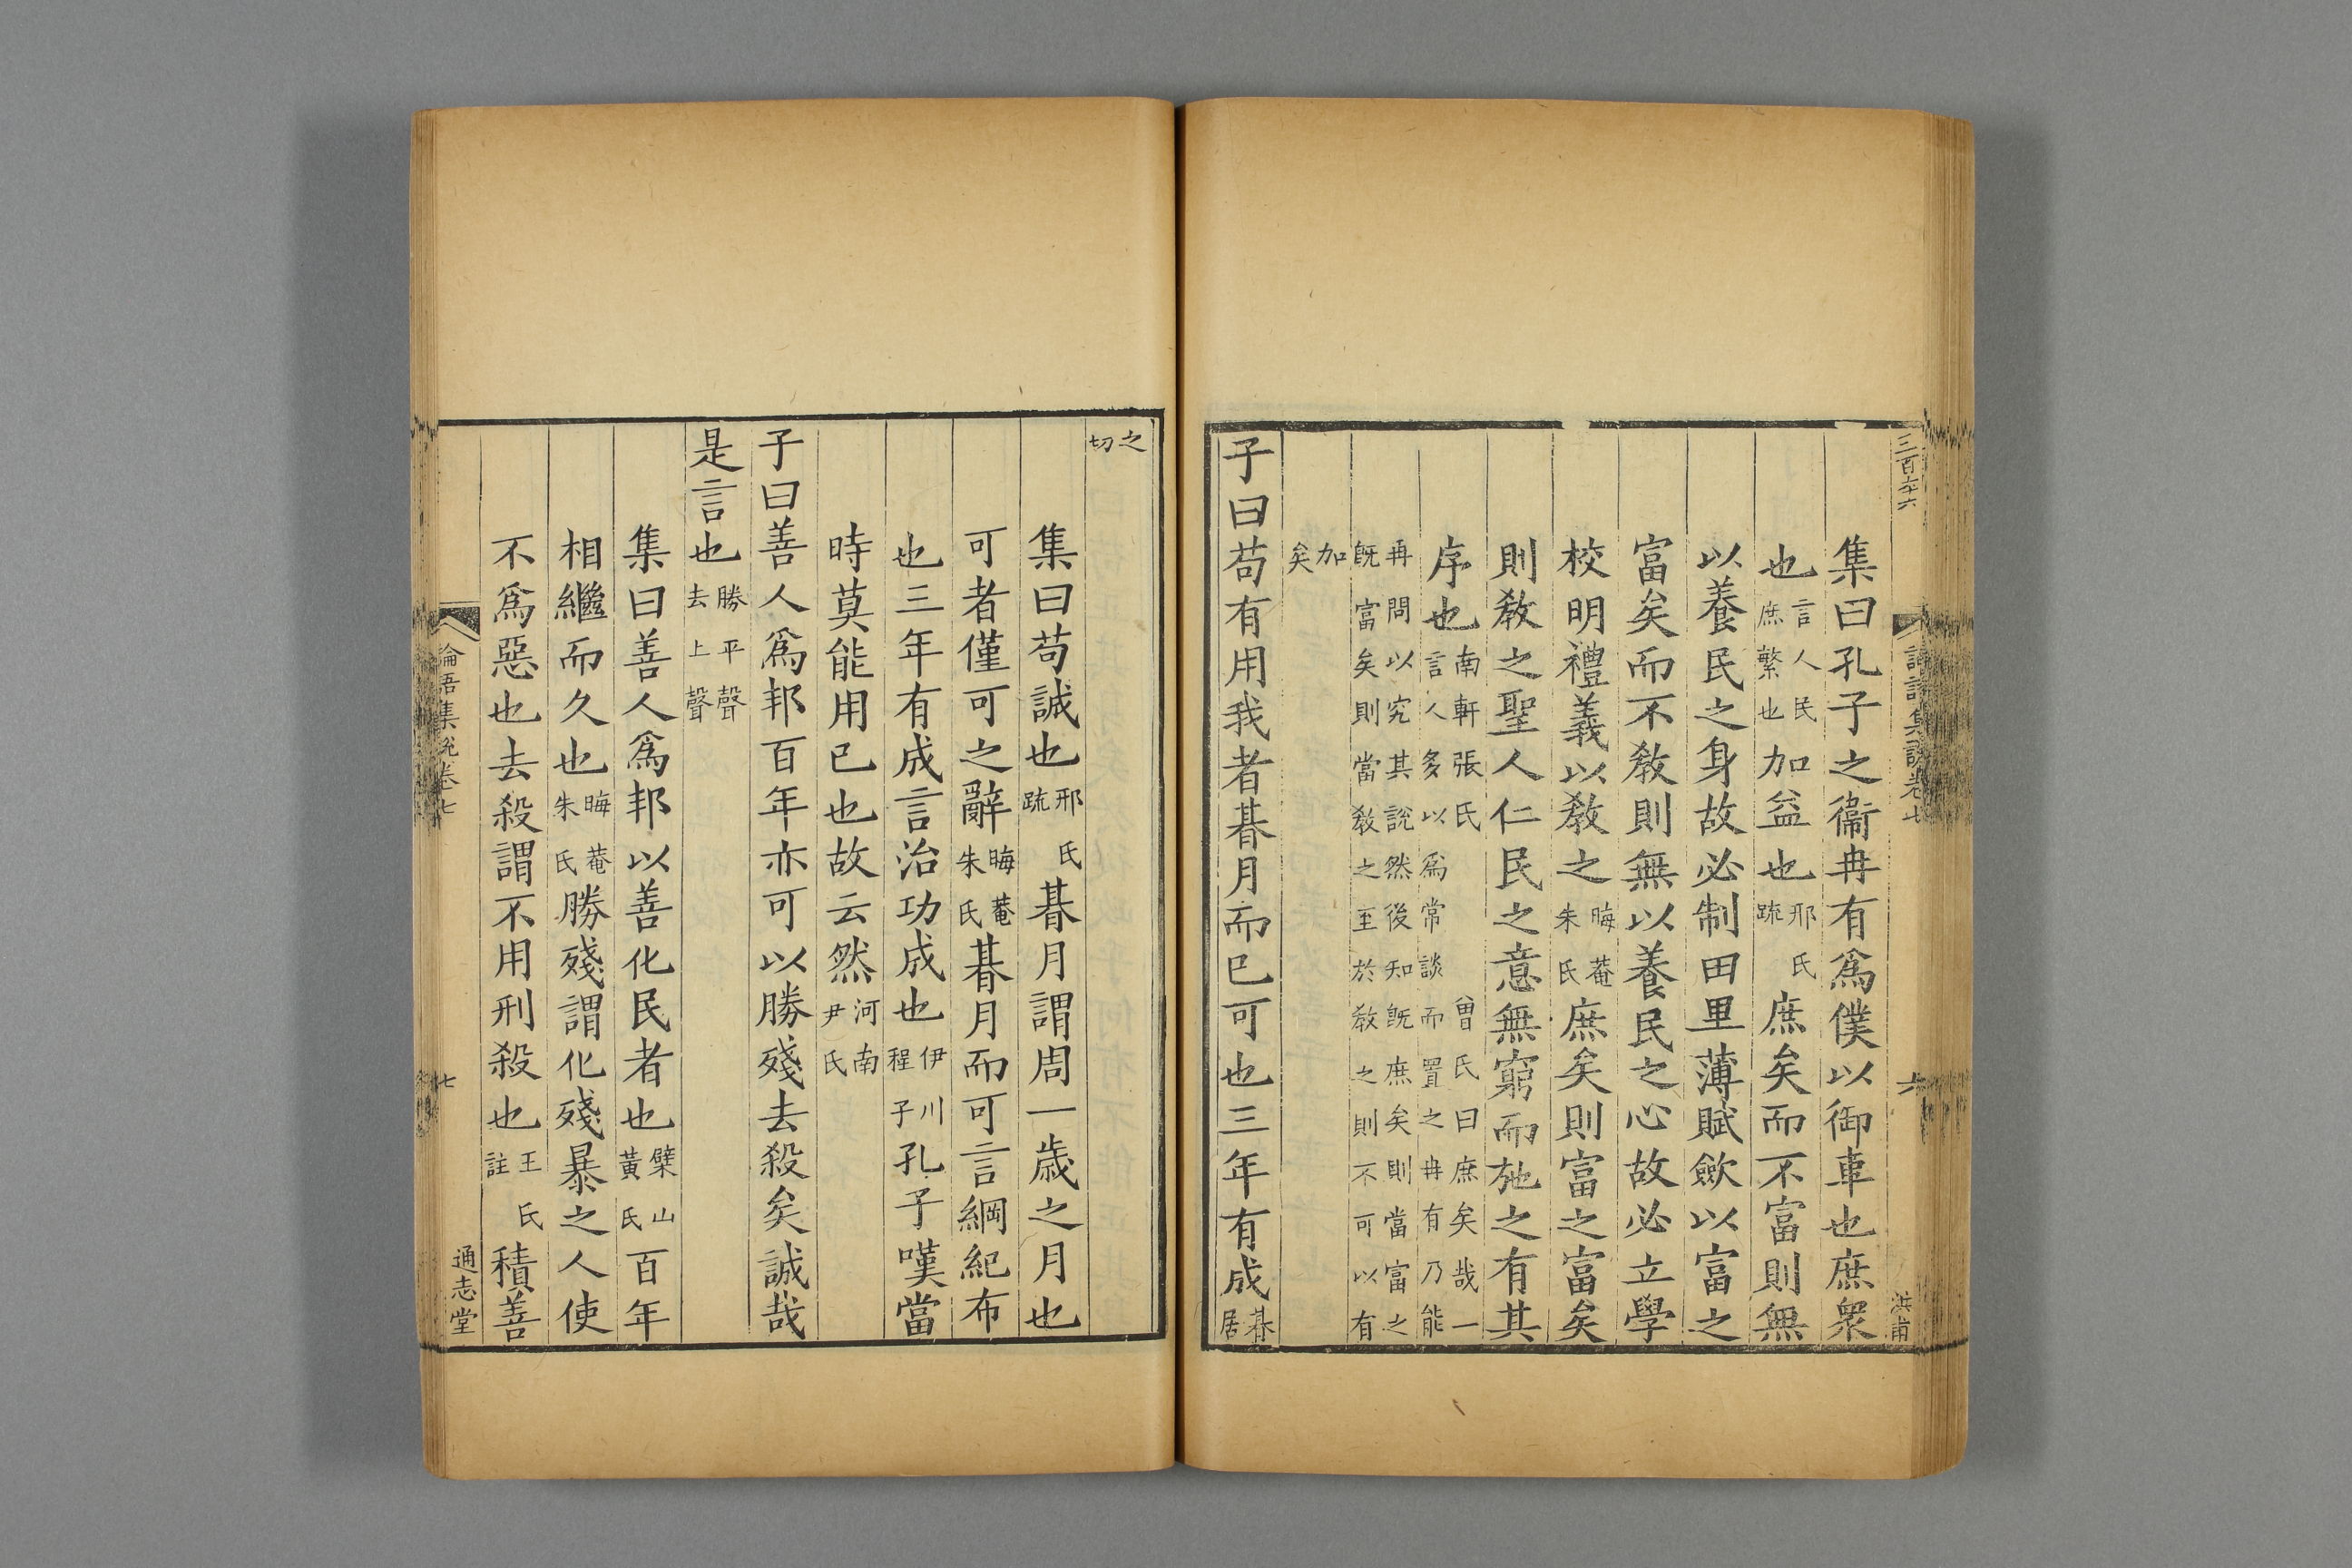 三百六十六
論語集說卷七
六
洪甫
集曰孔子之衞冉有爲僕以御車也庶衆
也言人民庶繁也加益也邢氏疏庶矣而不富則無
以養民之身故必制田里薄賦斂以富之
富矣而不敎則無以養民之心故必立學
校明禮義以敎之晦菴朱氏庶矣則富之富矣
則敎之聖人仁民之意無窮而施之有其
序也南軒張氏 曾氏曰庶矣哉一言人多以爲常談而置之冉有乃能
再問以究其說然後知旣庶矣則當富之旣富矣則當敎之至於敎之則不可以有
加矣
子曰苟有用我者朞月而已可也三年有成朞居
之切
集曰苟誠也邢氏疏朞月謂周一歲之月也
可者僅可之辭晦菴朱氏朞月而可言綱紀布
也三年有成言治功成也伊川程子孔子嘆當
時莫能用已也故云然河南尹氏
子曰善人爲邦百年亦可以勝殘去殺矣誠哉
是言也勝平聲去上聲
集曰善人爲邦以善化民者也檗山黃氏百年
相繼而久也晦菴朱氏勝殘謂化殘暴之人使
不爲惡也去殺謂不用刑殺也王氏註積善
論語集說卷七
七
通志堂